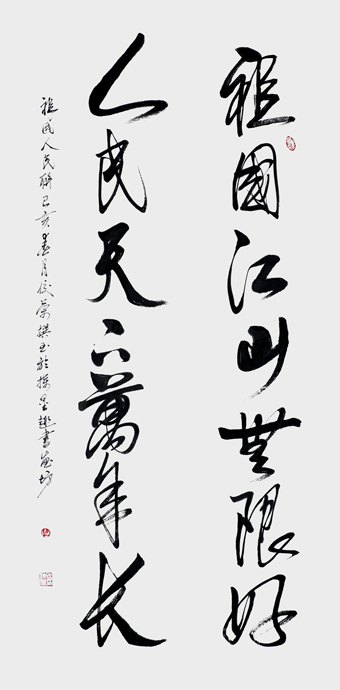 祖國江山無限好
人民天下萬年長
祖國人民聯己亥春月俊榮撰書於探墨趣書画坊